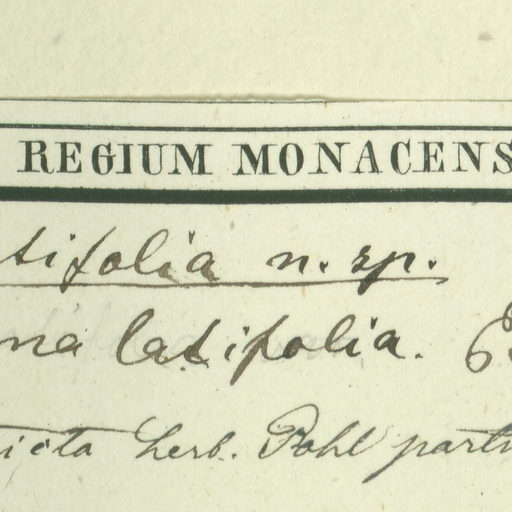 REGIUM MONACENS
tifolia n. sp.
na latifolia.
icta herb. Pohl partn